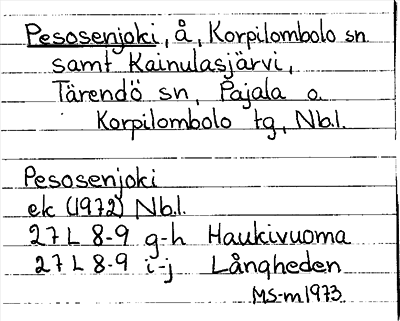 Pesosenjoki, å, Korpilombolo sn
samt Kainulasjärvi,
Tärendö sn, Pajala o.
Korpilombolo tg, Nb.l.
Pesosenjoki
ek (1972) Nb.l.
27 L 8-9 g-h Haukivuoma
27 L 8-9 i-j Långheden
MS-m 1973